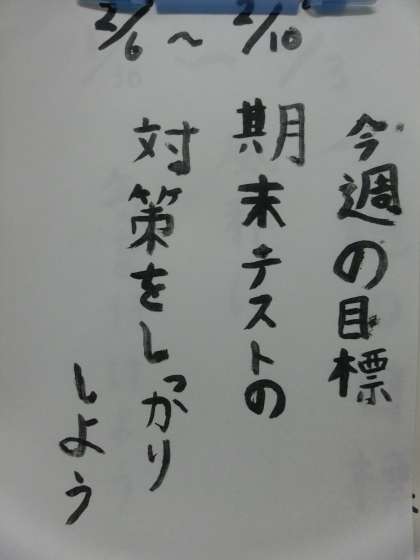 2/6～2/10
今週の目標
期末テストの
対策をしっかり
しよう